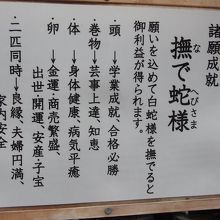 諸願成就
撫で蛇様
な
へびさま
願いを込めて白蛇様を撫でると
御利益が得られます。
・頭→学業成就、合格必勝
・巻物→芸事上達、知恵
・体→身体健康、病気平癒
・卵→金運、商売繁盛、
出世開運、安産子宝
・二匹同時→良縁、夫婦円満、
家内安全